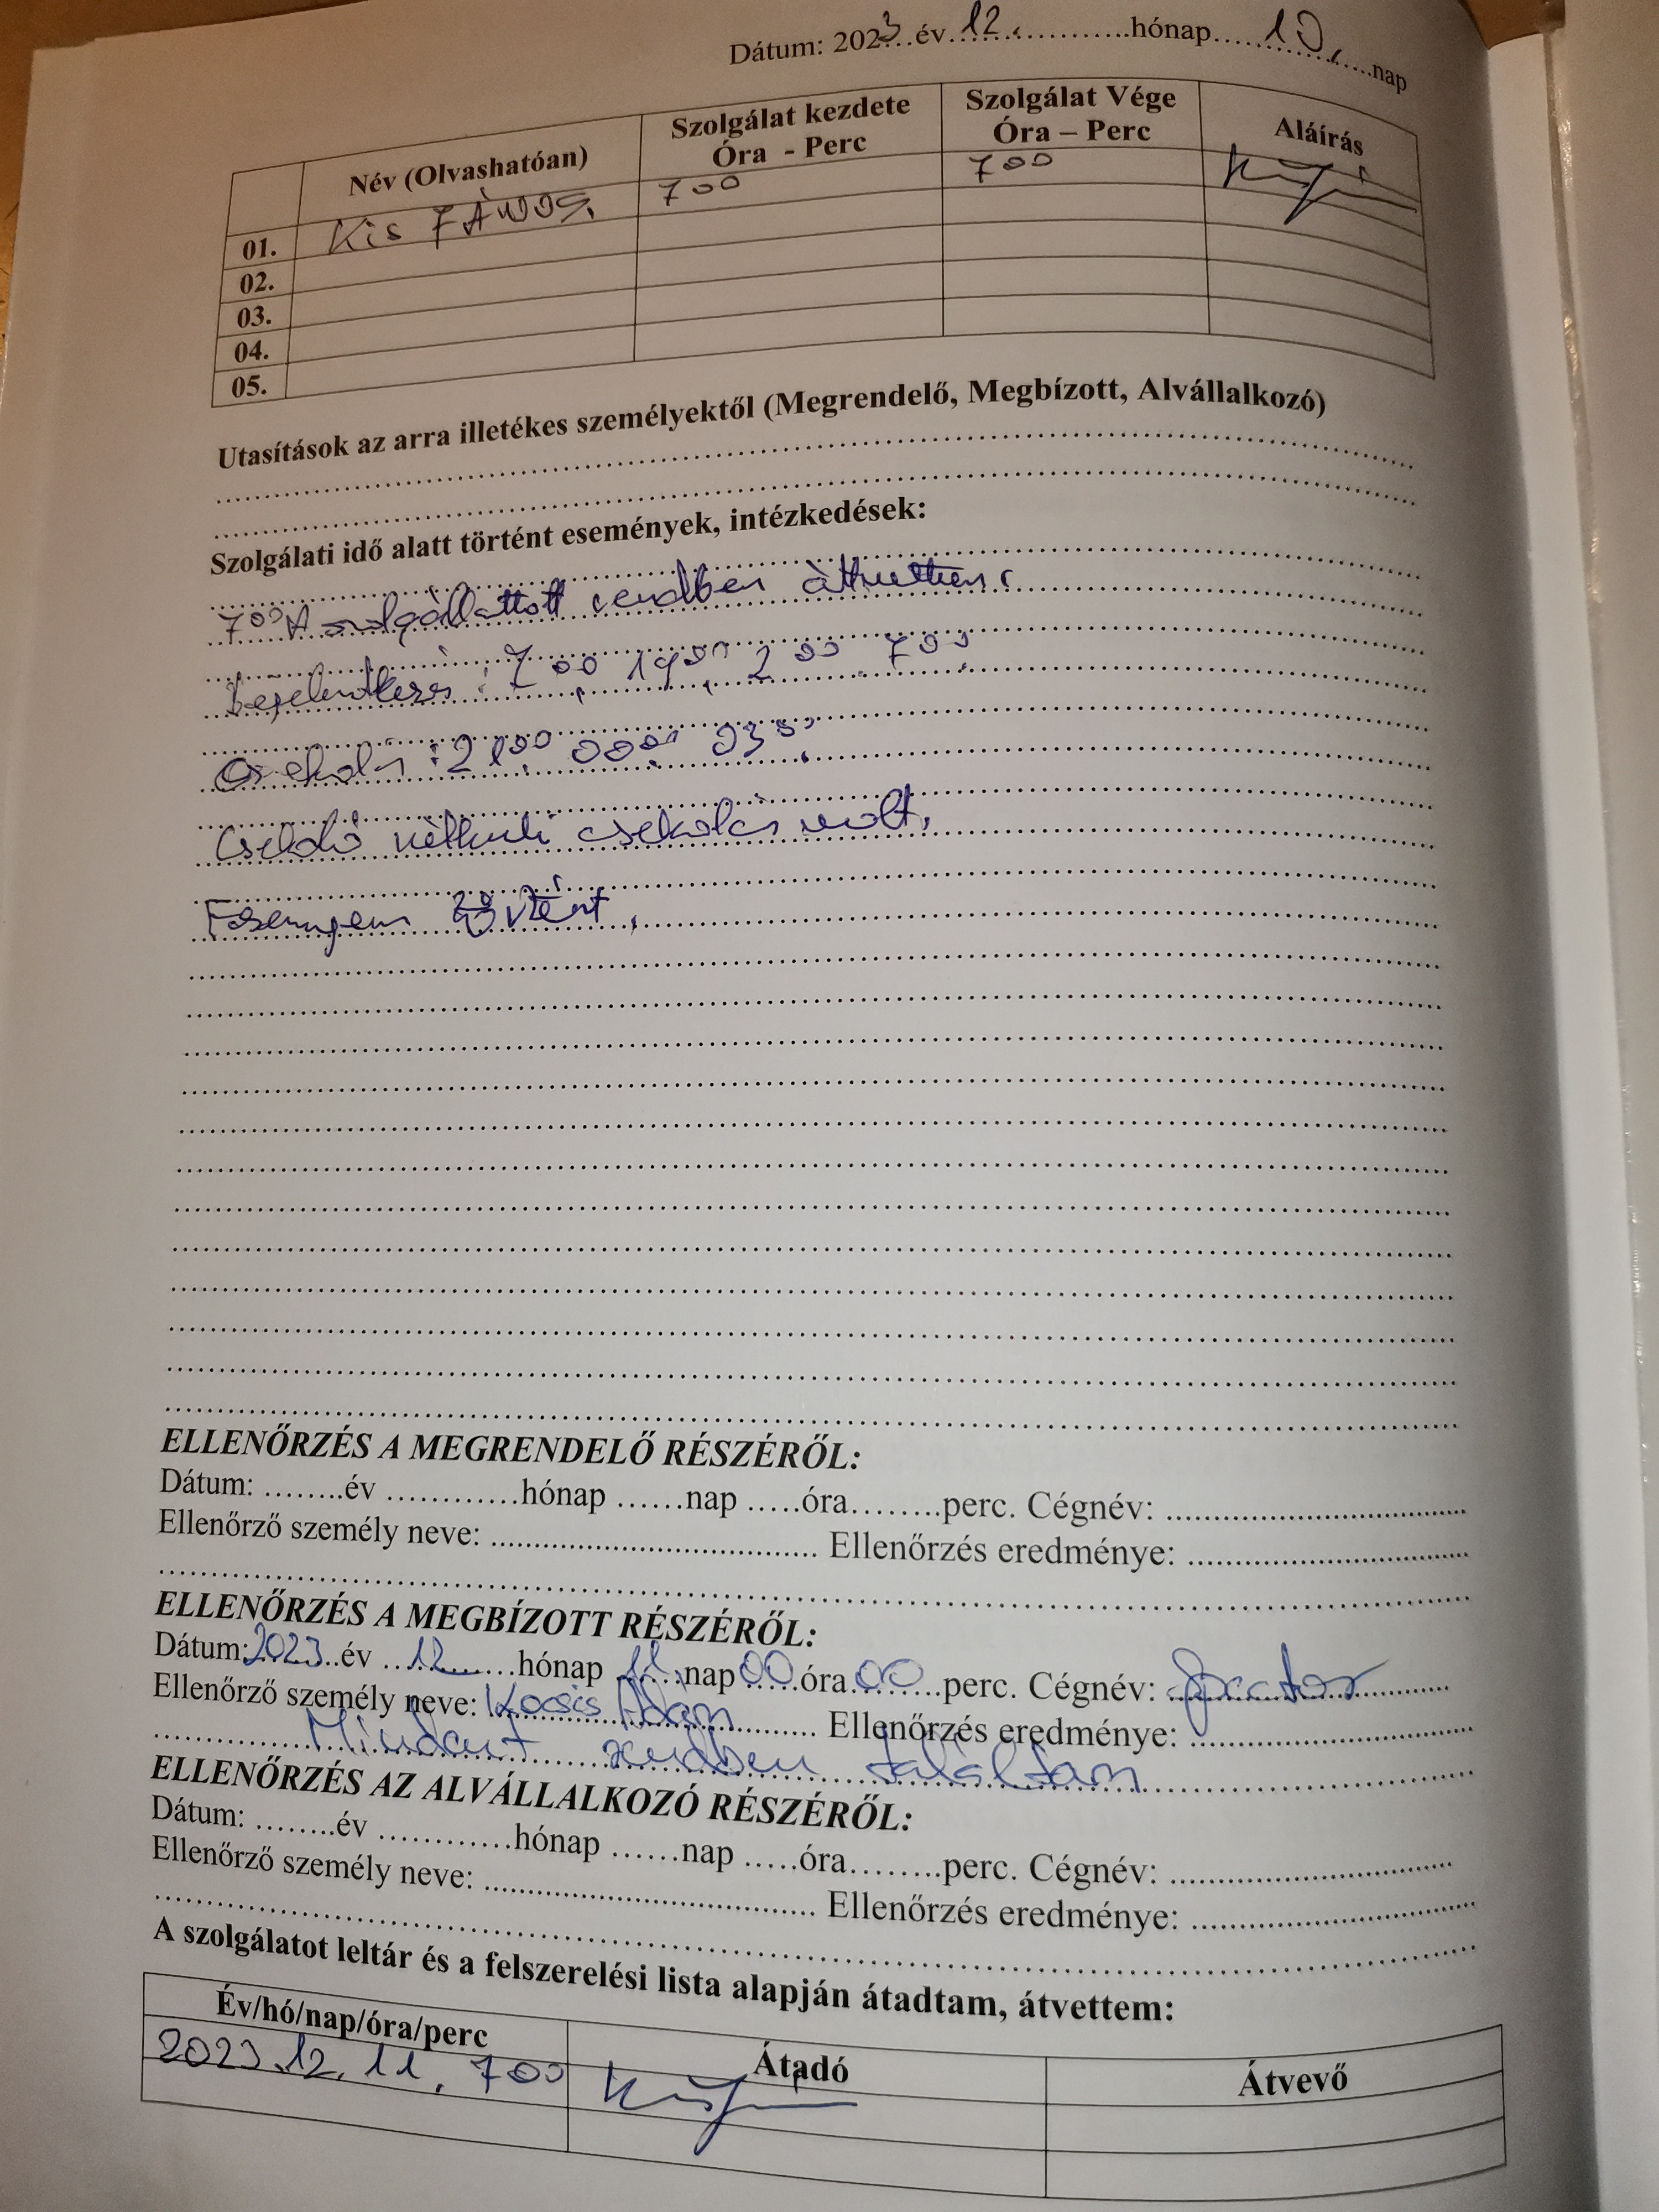 Dátum: 2023 év 12. hónap 10. nap
Név (Olvashatóan) Szolgálat kezdete Óra - Perc Szolgálat Vége Óra – Perc Aláírás
01. Kis JÁNOS 700 700
02.
03.
04.
05.
Utasítások az arra illetékes személyektől (Megrendelő, Megbízott, Alvállalkozó)
Szolgálati idő alatt történt események, intézkedések:
700 A szolgállattott rendben
Bejelentkezés: 700, 1900, 200 700
2100, 0000, 0300,
nélküli csekolás volt,
történt,
ELLENŐRZÉS A MEGRENDELŐ RÉSZÉRŐL:
Dátum: ........év ............hónap ......nap .....óra........perc. Cégnév: ....................
Ellenőrző személy neve: .................... Ellenőrzés eredménye: ....................
ELLENŐRZÉS A MEGBÍZOTT RÉSZÉRŐL:
Dátum: 2023 év 12 hónap 11. nap 00 óra 00 perc. Cégnév:
Ellenőrző személy neve: Kocsis Ádám Ellenőrzés eredménye: ....................
Mindent rendben találtam
ELLENŐRZÉS AZ ALVÁLLALKOZÓ RÉSZÉRŐL:
Dátum: ........év ............hónap ......nap .....óra........perc. Cégnév: ....................
Ellenőrző személy neve: .................... Ellenőrzés eredménye: ....................
A szolgálatot leltár és a felszerelési lista alapján átadtam, átvettem:
Év/hó/nap/óra/perc Átadó Átvevő
2023.12.11. 700